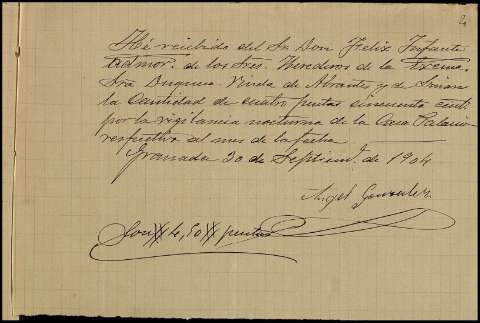 He recibido del Sr. Don Felix Infante
Admor. de los Sres. Herederos de la Excma.
Sra Duquesa Viuda de Abrantes y de Linares
la Cantidad de cuatro pesetas cincuenta cents
por la vigilancia nocturna de la Casa Palacio
respectiva al mes de la fecha
Granada 30 de Septiem. de 1904
Angel Gonzalez
Son 4,50 pesetas